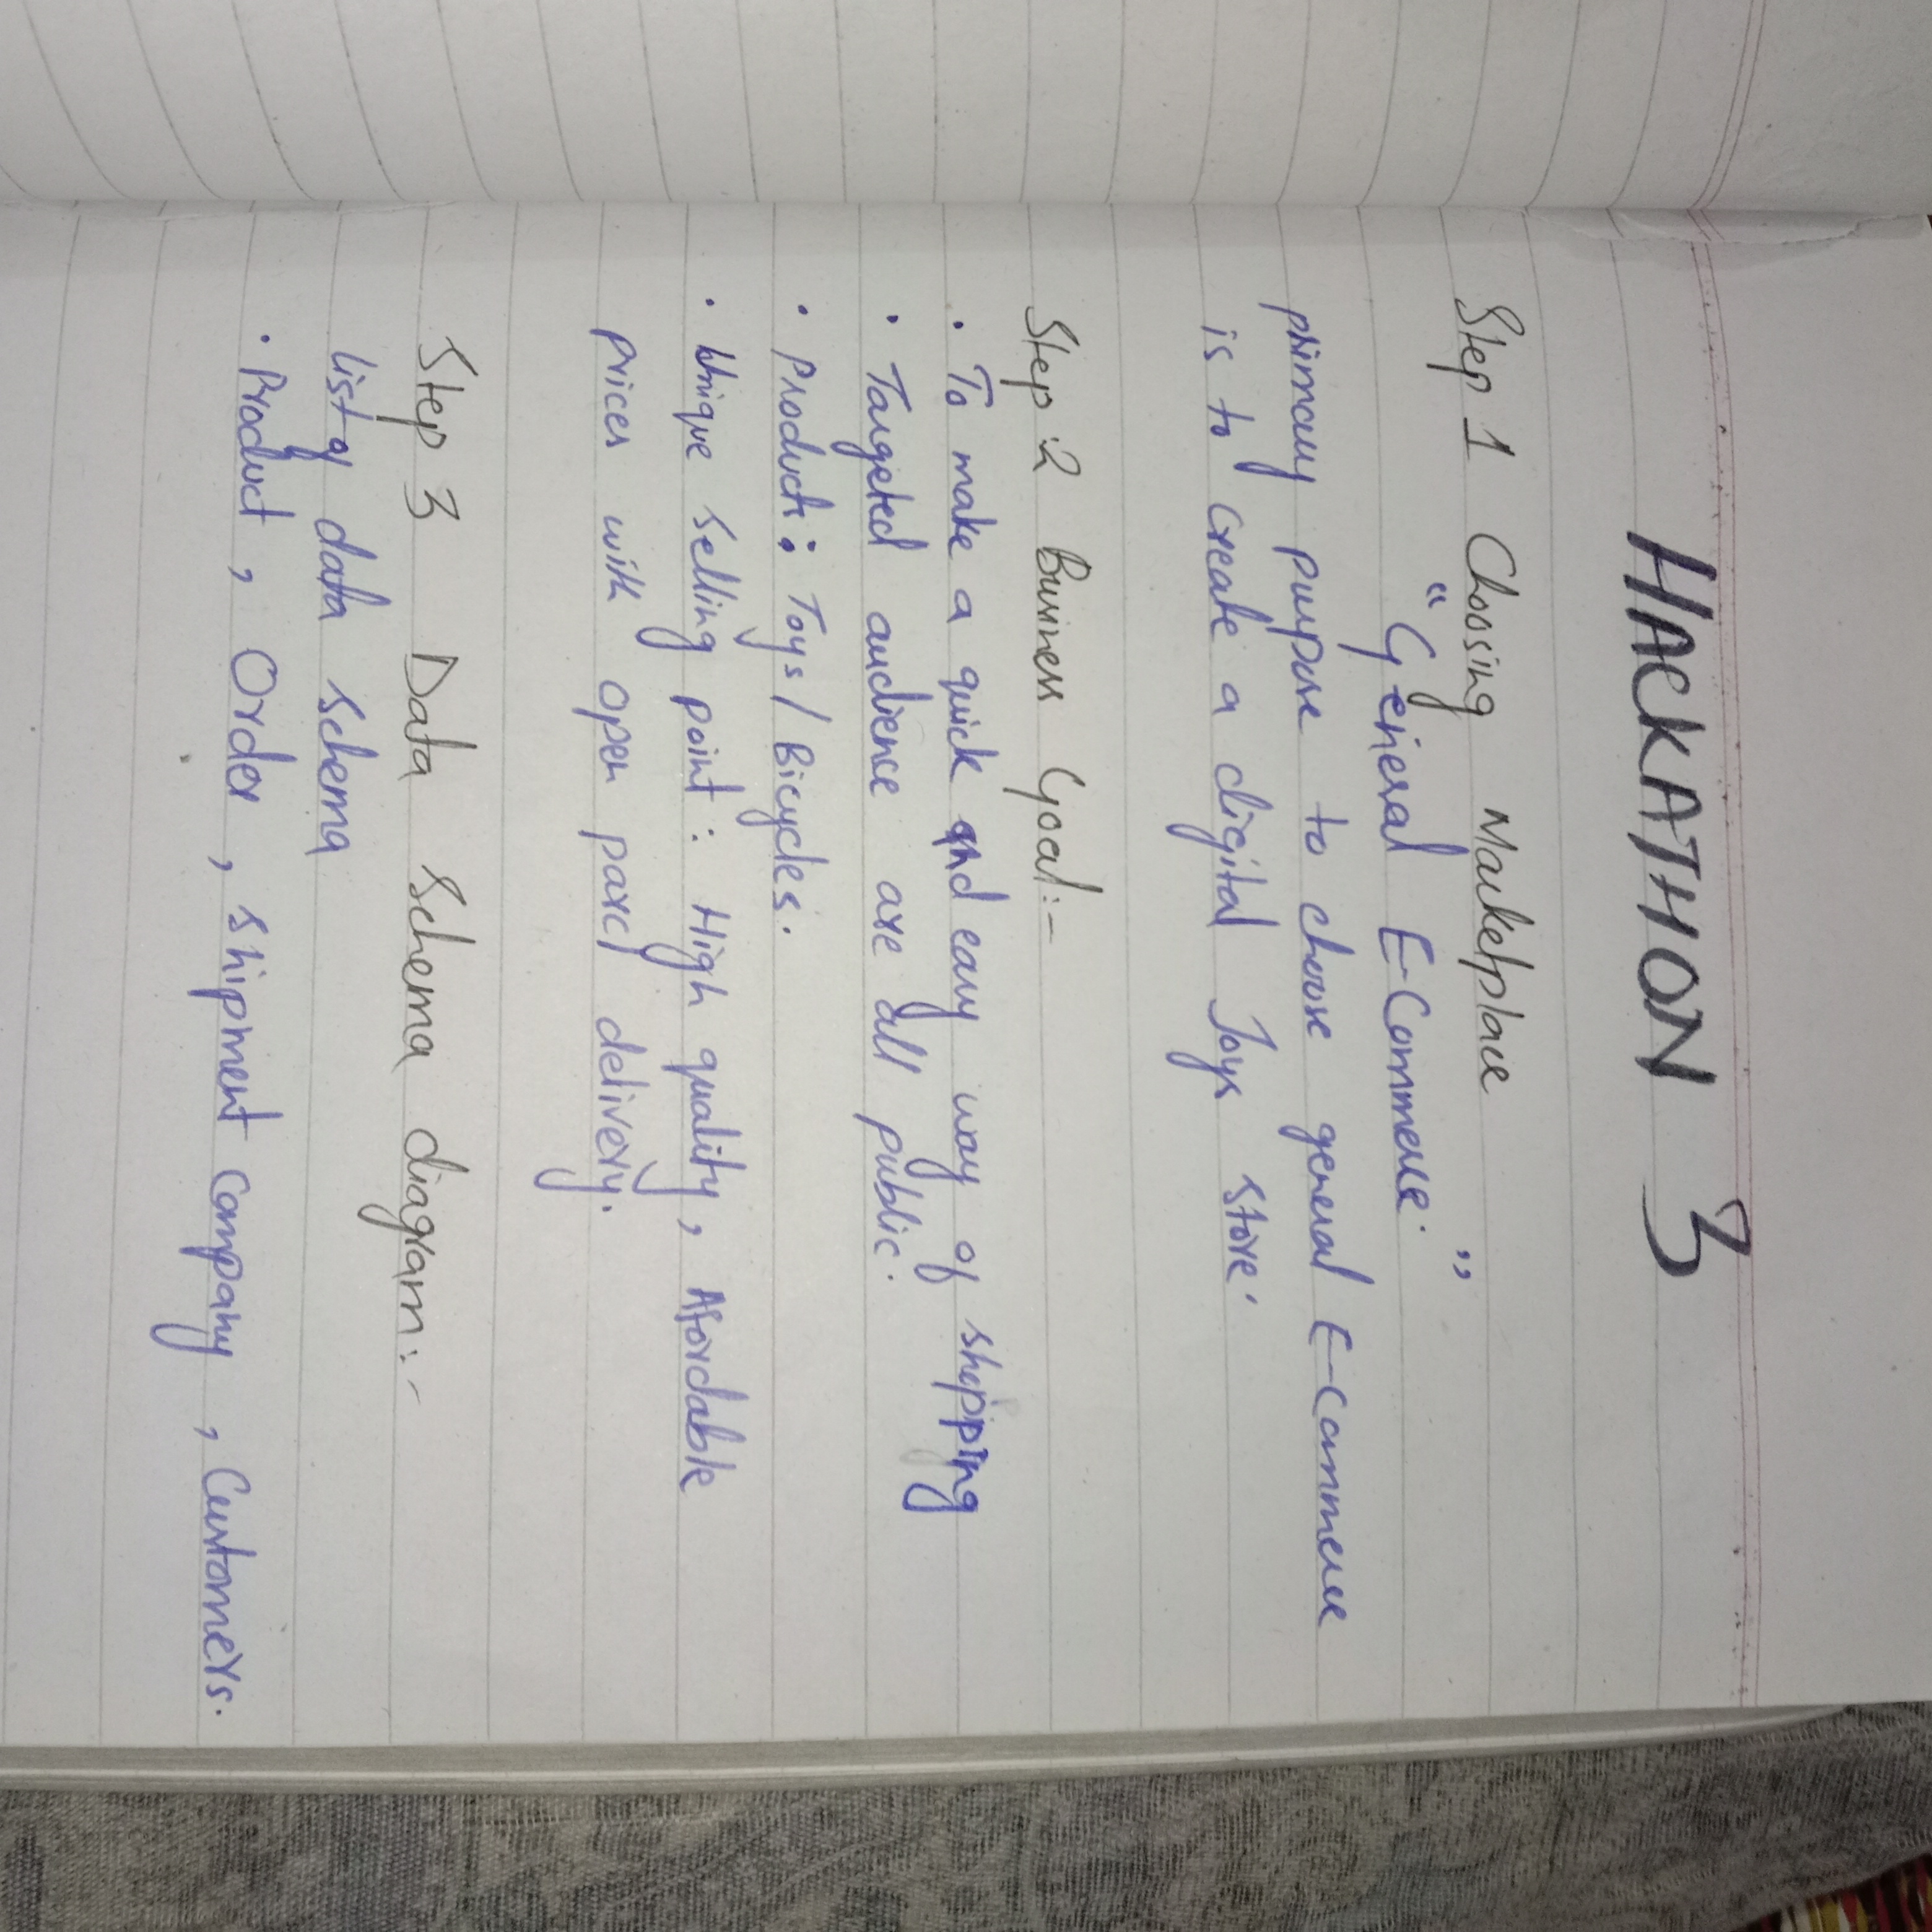 HACKATHON 3
Step 1 Choosing Marketplace
"General E-Commerce."
primary purpose to choose general E-Commerce
is to create a digital Toys store.
Step 2 Business Goal:-
• To make a quick and easy way of shopping
• Targeted audience are all public.
• Products: Toys / Bicycles.
• Unique selling point: High quality, Affordable
prices with open parcl delivery.
Step 3 Data Schema diagram:-
list of data schema
• Product, Order, shipment company, Customers.